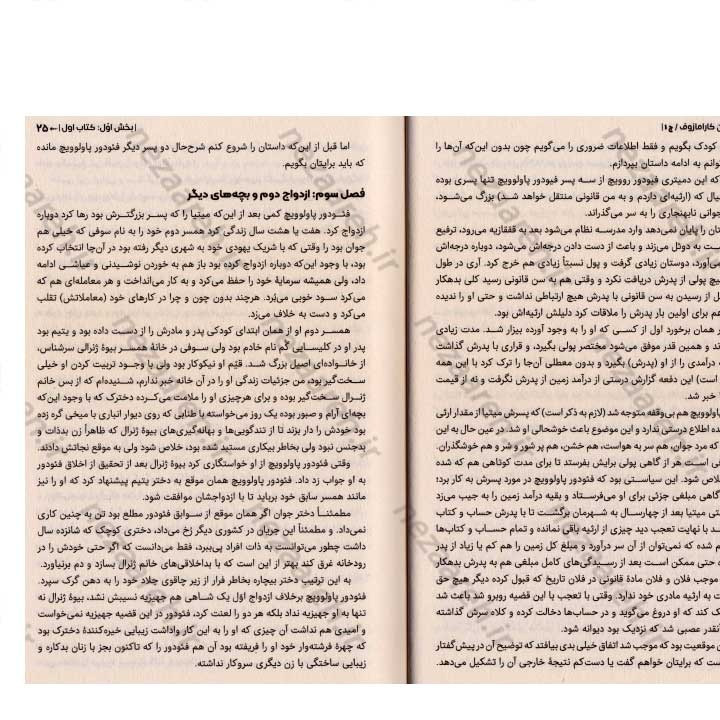 ن کارامازوف / ج۱|
کودک بگویم و فقط اطلاعات ضروری را می‌گویم چون بدون این‌که آن‌ها را
وانم به ادامه داستان بپردازم.
که این دمیتری فیودور روویچ از سه پسر فیودور پاولوویچ تنها پسری بوده
یال که (ارثیه‌ای دارم و به سن قانونی منتقل خواهد شد) بزرگ می‌شود،
جوانی نابهنجاری را به سر می‌گذراند.
تان را پایان نمی‌دهد وارد مدرسه نظام می‌شود بعد به قفقازیه می‌رود، ترفیع
ست به دوئل می‌زند و باعث از دست دادن درجه‌اش می‌شود، دوباره درجه‌اش
می‌آورد، دوستان زیادی گرفت و پول نسبتاً زیادی هم خرج کرد. آری در طول
هیچ پولی از پدرش دریافت نکرد و وقتی هم به سن قانونی رسید کلی بدهکار
ل از رسیدن به سن قانونی با پدرش هیچ ارتباطی نداشت و حتی او را ندیده
هم برای اولین بار پدرش را ملاقات کرد دلیلش ارثیه‌اش بود.
ر همان برخورد اول از کسی که او را به وجود آورده بیزار شد. مدت زیادی
ند و همین قدر موفق می‌شود مختصر پولی بگیرد، و قراری با پدرش گذاشت
ه درآمدی را از او (پدرش) بگیرد و بدون معطلی آن‌جا را ترک کرد با این همه
است) این دفعه گزارش درستی از درآمد زمین از پدرش نگرفت و نه از قیمت
خبر شد.
پاولوویچ هم بی‌وقفه متوجه شد (لازم به ذکر است) که پسرش میتیا از مقدار ارثی
ده اطلاع درستی ندارد و این موضوع باعث خوشحالی او شد. در عین حال به این
که مرد جوان، هم سر به هواست، هم خشن، هم پر شور و شر و هم خوشگذران.
فی است هر از گاهی پولی برایش بفرستد تا برای مدت کوتاهی هم که شده
خلاص شود. این سیاستی بود که فئودور پاولوویچ در مورد پسرش به کار برد؛
گاهی مبلغی جزئی برای او می‌فرستاد و بقیه درآمد زمین را به جیب می‌زد
تی میتیا بعد از چهارسال به شهرمان برگشت تا با پدرش حساب و کتاب
د با نهایت تعجب دید چیزی از ارثیه باقی نمانده و تمام حساب و کتاب‌ها
م شده که نمی‌توان از آن سر درآورد و مبلغ کل زمین را هم کم یا زیاد از پدر
ه حتی ممکن است بعد از رسیدگی‌های کامل مبلغی هم به پدرش بدهکار
موجب فلان و فلان مادهٔ قانونی در فلان تاریخ که قبول کرده دیگر هیچ حق
ت به ارثیه مادری خود ندارد. وقتی با تعجب با این قضیه روبرو شد باعث شد
ک کند که او دروغ می‌گوید و در حساب‌ها دخالت کرده و کلاه سرش گذاشته
آنقدر عصبی شد که نزدیک بود دیوانه شود.
ن موقعیت بود که موجب شد اتفاق خیلی بدی بیافتد که توضیح آن در پیش‌گفتار
ست که برایتان خواهم گفت یا دست‌کم نتیجهٔ خارجی آن را تشکیل می‌دهد.
|بخش اوّل: کتاب اول| ← ۲۵
اما قبل از این‌که داستان را شروع کنم شرح‌حال دو پسر دیگر فئودور پاولوویچ مانده
که باید برایتان بگویم.
فصل سوم: ازدواج دوم و بچه‌های دیگر
فئودور پاولوویچ کمی بعد از این‌که میتیا را که پسر بزرگترش بود رها کرد دوباره
ازدواج کرد. هفت یا هشت سال زندگی کرد همسر دوم خود را به نام سوفی که خیلی هم
جوان بود را وقتی که با شریک یهودی خود به شهری دیگر رفته بود در آن‌جا انتخاب کرده
بود، با وجود این‌که دوباره ازدواج کرده بود باز هم به خوردن نوشیدنی و عیاشی ادامه
داد، ولی همیشه سرمایهٔ خود را حفظ می‌کرد و به کار می‌انداخت و هر معامله‌ای هم که
می‌کرد سود خوبی می‌بُرد. هرچند بدون چون و چرا در کارهای خود (معاملاتش) تقلب
می‌کرد و دست به خلاف می‌زد.
همسر دوم او از همان ابتدای کودکی پدر و مادرش را از دست داده بود و یتیم بود
پدر او در کلیسایی گُم نام خادم بود ولی سوفی در خانهٔ همسر بیوهٔ ژنرالی سرشناس،
از خانواده‌ای اصیل بزرگ شد. قیّم او نیکوکار بود ولی با وجود تربیت کردن او خیلی
سخت‌گیر بود، من جزئیات زندگی او را در آن خانه خبر ندارم، شنیده‌ام که از بس خانم
ژنرال سخت‌گیر بوده و برای هرچیزی او را ملامت می‌کرده دخترک که با وجود این‌که
بچه‌ای آرام و صبور بوده یک روز می‌خواسته با طنابی که روی دیوار انباری با میخی گره زده
بود خودش را دار بزند تا از تندگویی‌ها و بهانه‌گیری‌های بیوهٔ ژنرال که ظاهراً زن بدذات و
بدجنس نبود ولی بخاطر بیکاری مستبد شده بود، خلاص شود ولی به موقع نجاتش دادند.
وقتی فئودور پاولوویچ از او خواستگاری کرد بیوهٔ ژنرال بعد از تحقیق از اخلاق فئودور
به او جواب رد داد. فئودور پاولوویچ همان موقع به دختر یتیم پیشنهاد کرد که او را نیز
مانند همسر سابق خود برباید تا با ازدواجشان موافقت شود.
مطمئناً دختر جوان اگر همان موقع از سوابق فئودور مطلع بود تن به چنین کاری
نمی‌داد. و مطمئناً این جریان در کشوری دیگر رُخ می‌داد، دختری کوچک که شانزده سال
داشت چطور می‌توانست به ذات افراد پی‌ببرد، فقط می‌دانست که اگر حتی خودش را در
رودخانه غرق کند بهتر از این است که با بداخلاقی‌های خانم ژنرال بسازد و دم برنیاورد.
به این ترتیب دختر بیچاره بخاطر فرار از زیر چاقوی جلاد خود را به دهن گرگ سپرد.
فئودور پاولوویچ برخلاف ازدواج اوّل یک شاهی هم جهیزیه نسیبش نشد، بیوهٔ ژنرال نه
تنها به او جهیزیه نداد بلکه هر دو را لعنت کرد، فئودور در این قضیه جهیزیه نمی‌خواست
و امیدی هم نداشت آن چیزی که او را به این کار واداشت زیبایی خیره‌کنندهٔ دخترک بود
که چهرهٔ فرشته‌وار خود او را فریفته بود آن هم فئودور را که تاکنون بجز با زنان بدکاره و
زیبایی ساختگی با زن دیگری سروکار نداشته.